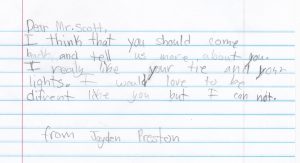 Dear Mr. Scott,
I think that you should come
back and tell us more about you.
I really like your tie and your
lights. I would love to be
difrent like you but I can not.
from Jayden Preston